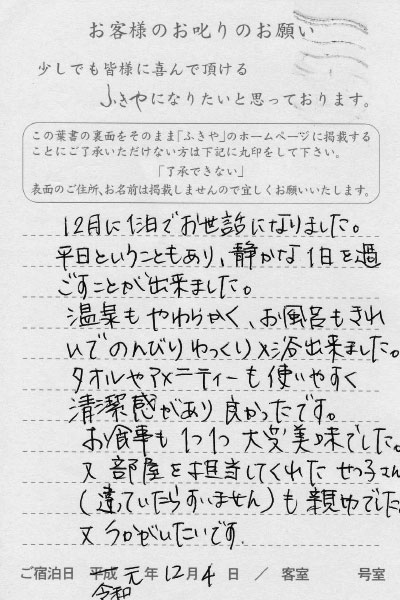 お客様のお叱りのお願い
少しでも皆様に喜んで頂ける
ふきやになりたいと思っております。
この葉書の裏面をそのまま「ふきや」のホームページに掲載する
ことにご了承いただけない方は下記に丸印をして下さい。
「了承できない」
表面のご住所、お名前は掲載しませんので宜しくお願いいたします。
12月に1泊でお世話になりました。
平日ということもあり、静かな1日を過
ごすことが出来ました。
温泉もやわらかく、お風呂もきれ
いでのんびりゆっくり入浴出来ました。
タオルやアメニティーも使いやすく
清潔感があり良かったです。
お食事も1つ1つ大変美味でした。
又部屋を担当してくれたせつ子さん
(違っていたらすいません)も親切でした
又うかがいたいです。
ご宿泊日 平成 元年12月4日 / 客室 号室
令和